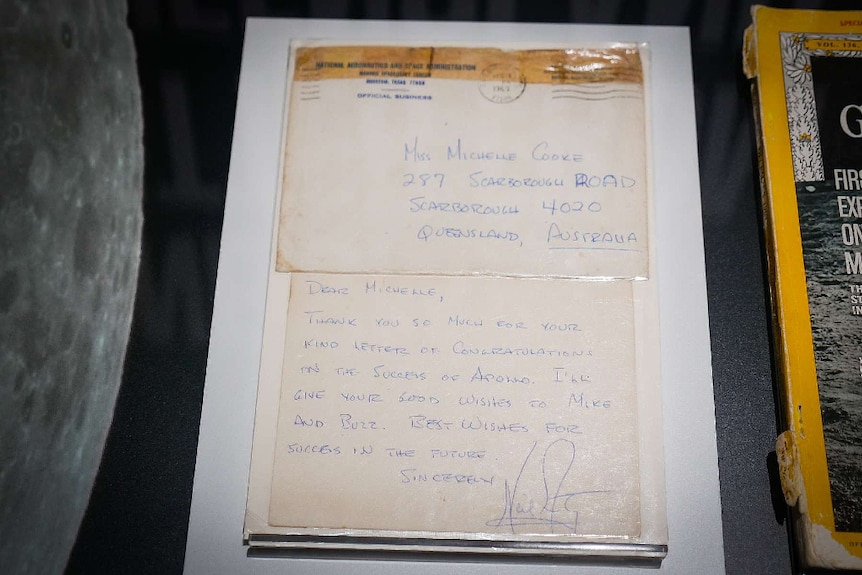 NATIONAL AERONAUTICS AND SPACE ADMINISTRATION
MANNED SPACECRAFT CENTER
HOUSTON, TEXAS 77058
OFFICIAL BUSINESS
1969
MISS MICHELLE COOKE
287 SCARBOROUGH ROAD
SCARBOROUGH 4020
QUEENSLAND, AUSTRALIA
DEAR MICHELLE,
THANK YOU SO MUCH FOR YOUR
KIND LETTER OF CONGRATULATIONS
ON THE SUCCESS OF APOLLO. I'LL
GIVE YOUR GOOD WISHES TO MIKE
AND BUZZ. BEST WISHES FOR
SUCCESS IN THE FUTURE.
SINCERELY
VOL. 136,
G
FIRS
EXP
ON
M